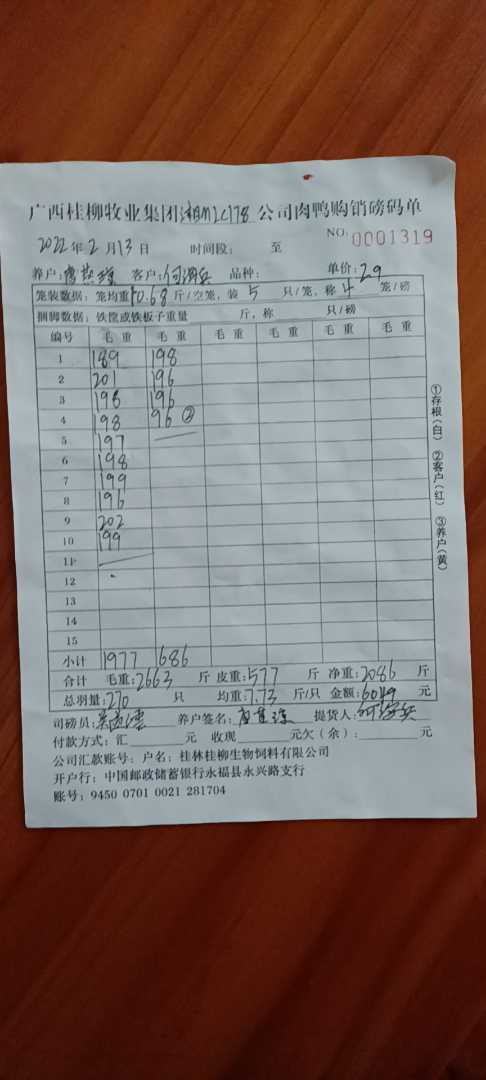 广西桂柳牧业集团湘M2C178公司肉鸭购销磅码单
NO: 0001319
2022年2月13日 时间段: 至
养户: 客户: 品种: 单价: 2.9
笼装数据: 笼均重 10.68 斤/空笼, 装 5 只/笼, 称 4 笼/磅
捆脚数据: 铁筐或铁板子重量 斤, 称 只/磅
编号 毛重 毛重 毛重 毛重 毛重 毛重
1 189 198
2 201 196
3 198 196
4 198 96 ②
5 197
6 198
7 199
8 196
9 202
10 199
11
12
13
14
15
小计 1977 686
合计 毛重: 2663 斤 皮重: 577 斤 净重: 2086 斤
总羽量: 270 只 均重: 7.73 斤/只 金额: 6049 元
司磅员: 养户签名: 提货人:
付款方式: 汇 元 收现 元欠(余): 元
公司汇款账号: 户名: 桂林桂柳生物饲料有限公司
开户行: 中国邮政储蓄银行永福县永兴路支行
账号: 9450 0701 0021 281704
①存根(白) ②客户(红) ③养户(黄)